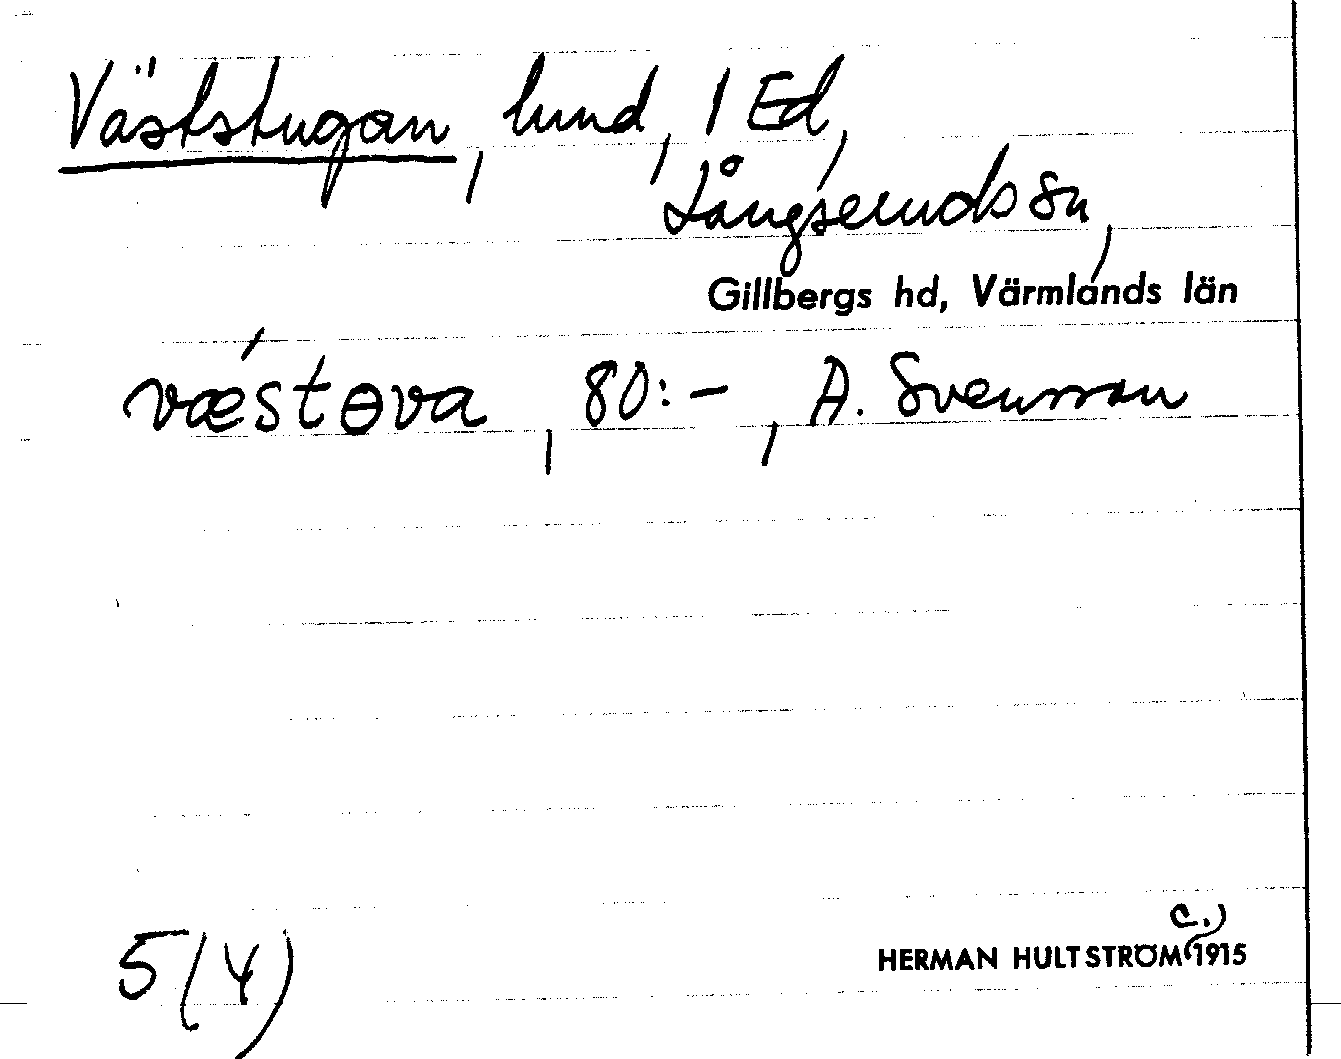 Väststugan, lund, 1 Ed,
Långseruds sn,
Gillbergs hd, Värmlands län
væ´stɵva, 80:-, A. Svensson
5(4)
HERMAN HULTSTRÖM (c.) 1915